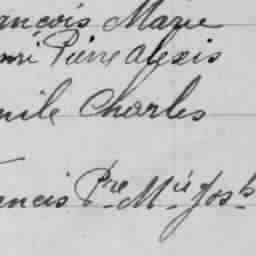 ançois Marie
enri Pierre Alexis
mile Charles
ancis Pre Mie Josh